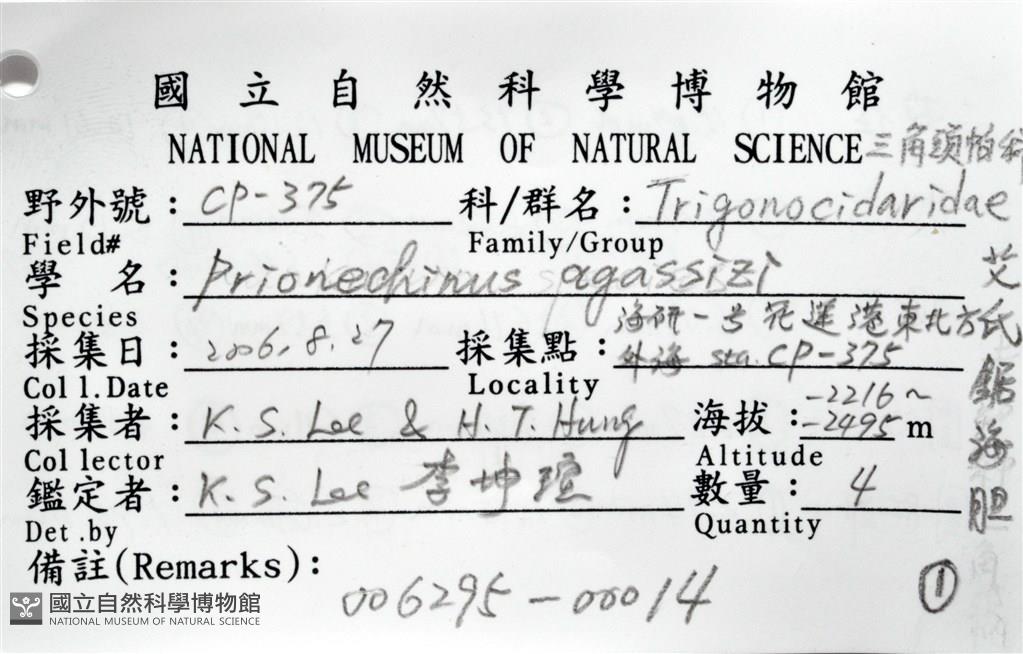 國立自然科學博物館
NATIONAL MUSEUM OF NATURAL SCIENCE 三角頭帕科
野外號: CP-375 科/群名: Trigonocidaridae
Field# Family/Group
學名: Prionechinus agassizi 艾氏鋸海胆
Species
採集日: 2006.8.27 採集點: 海研一号花蓮港東北方外海 sta. CP-375
Coll.Date Locality
採集者: K. S. Lee & H. T. Hung 海拔: -2216~-2495 m
Collector Altitude
鑑定者: K. S. Lee 李坤瑄 數量: 4
Det.by Quantity
備註(Remarks):
006295-00014 ①
國立自然科學博物館
NATIONAL MUSEUM OF NATURAL SCIENCE